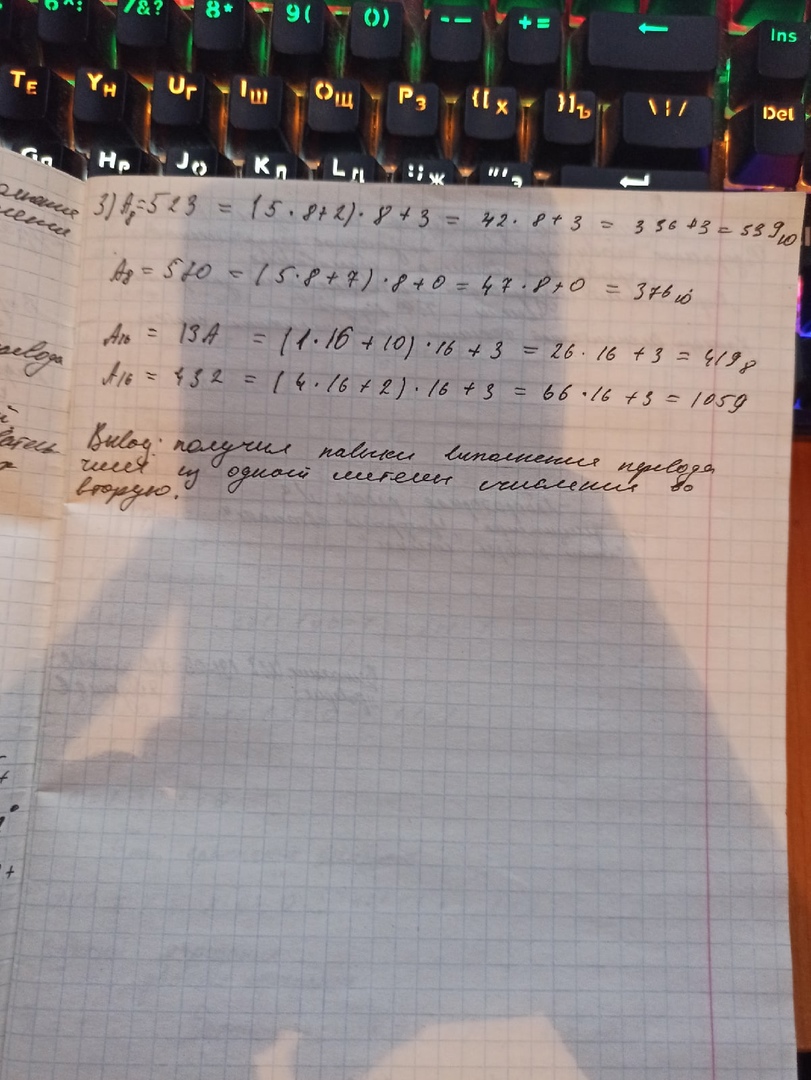 6^: 7/&? 8* 9( 0) -– += ← Ins
TЕ YН UГ IШ OЩ PЗ {[Х }]Ъ \¦/ Del
HР JО KЛ LД :;Ж "'Э ↵
3) A₈=523 = (5·8+2)·8+3 = 42·8+3 = 336+3=339₁₀
A₈ = 570 = (5·8+7)·8+0 = 47·8+0 = 376₁₀
A₁₆ = 13A = (1·16+10)·16+3 = 26·16+3 = 419₈
A₁₆ = 432 = (4·16+2)·16+3 = 66·16+3 = 1059
Вывод: получил навыки выполнения перевода
чисел из одной системы счисления во
вторую.